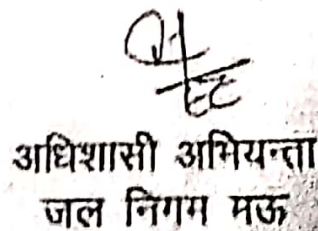 EE
अधिशासी अभियन्ता
जल निगम मऊ